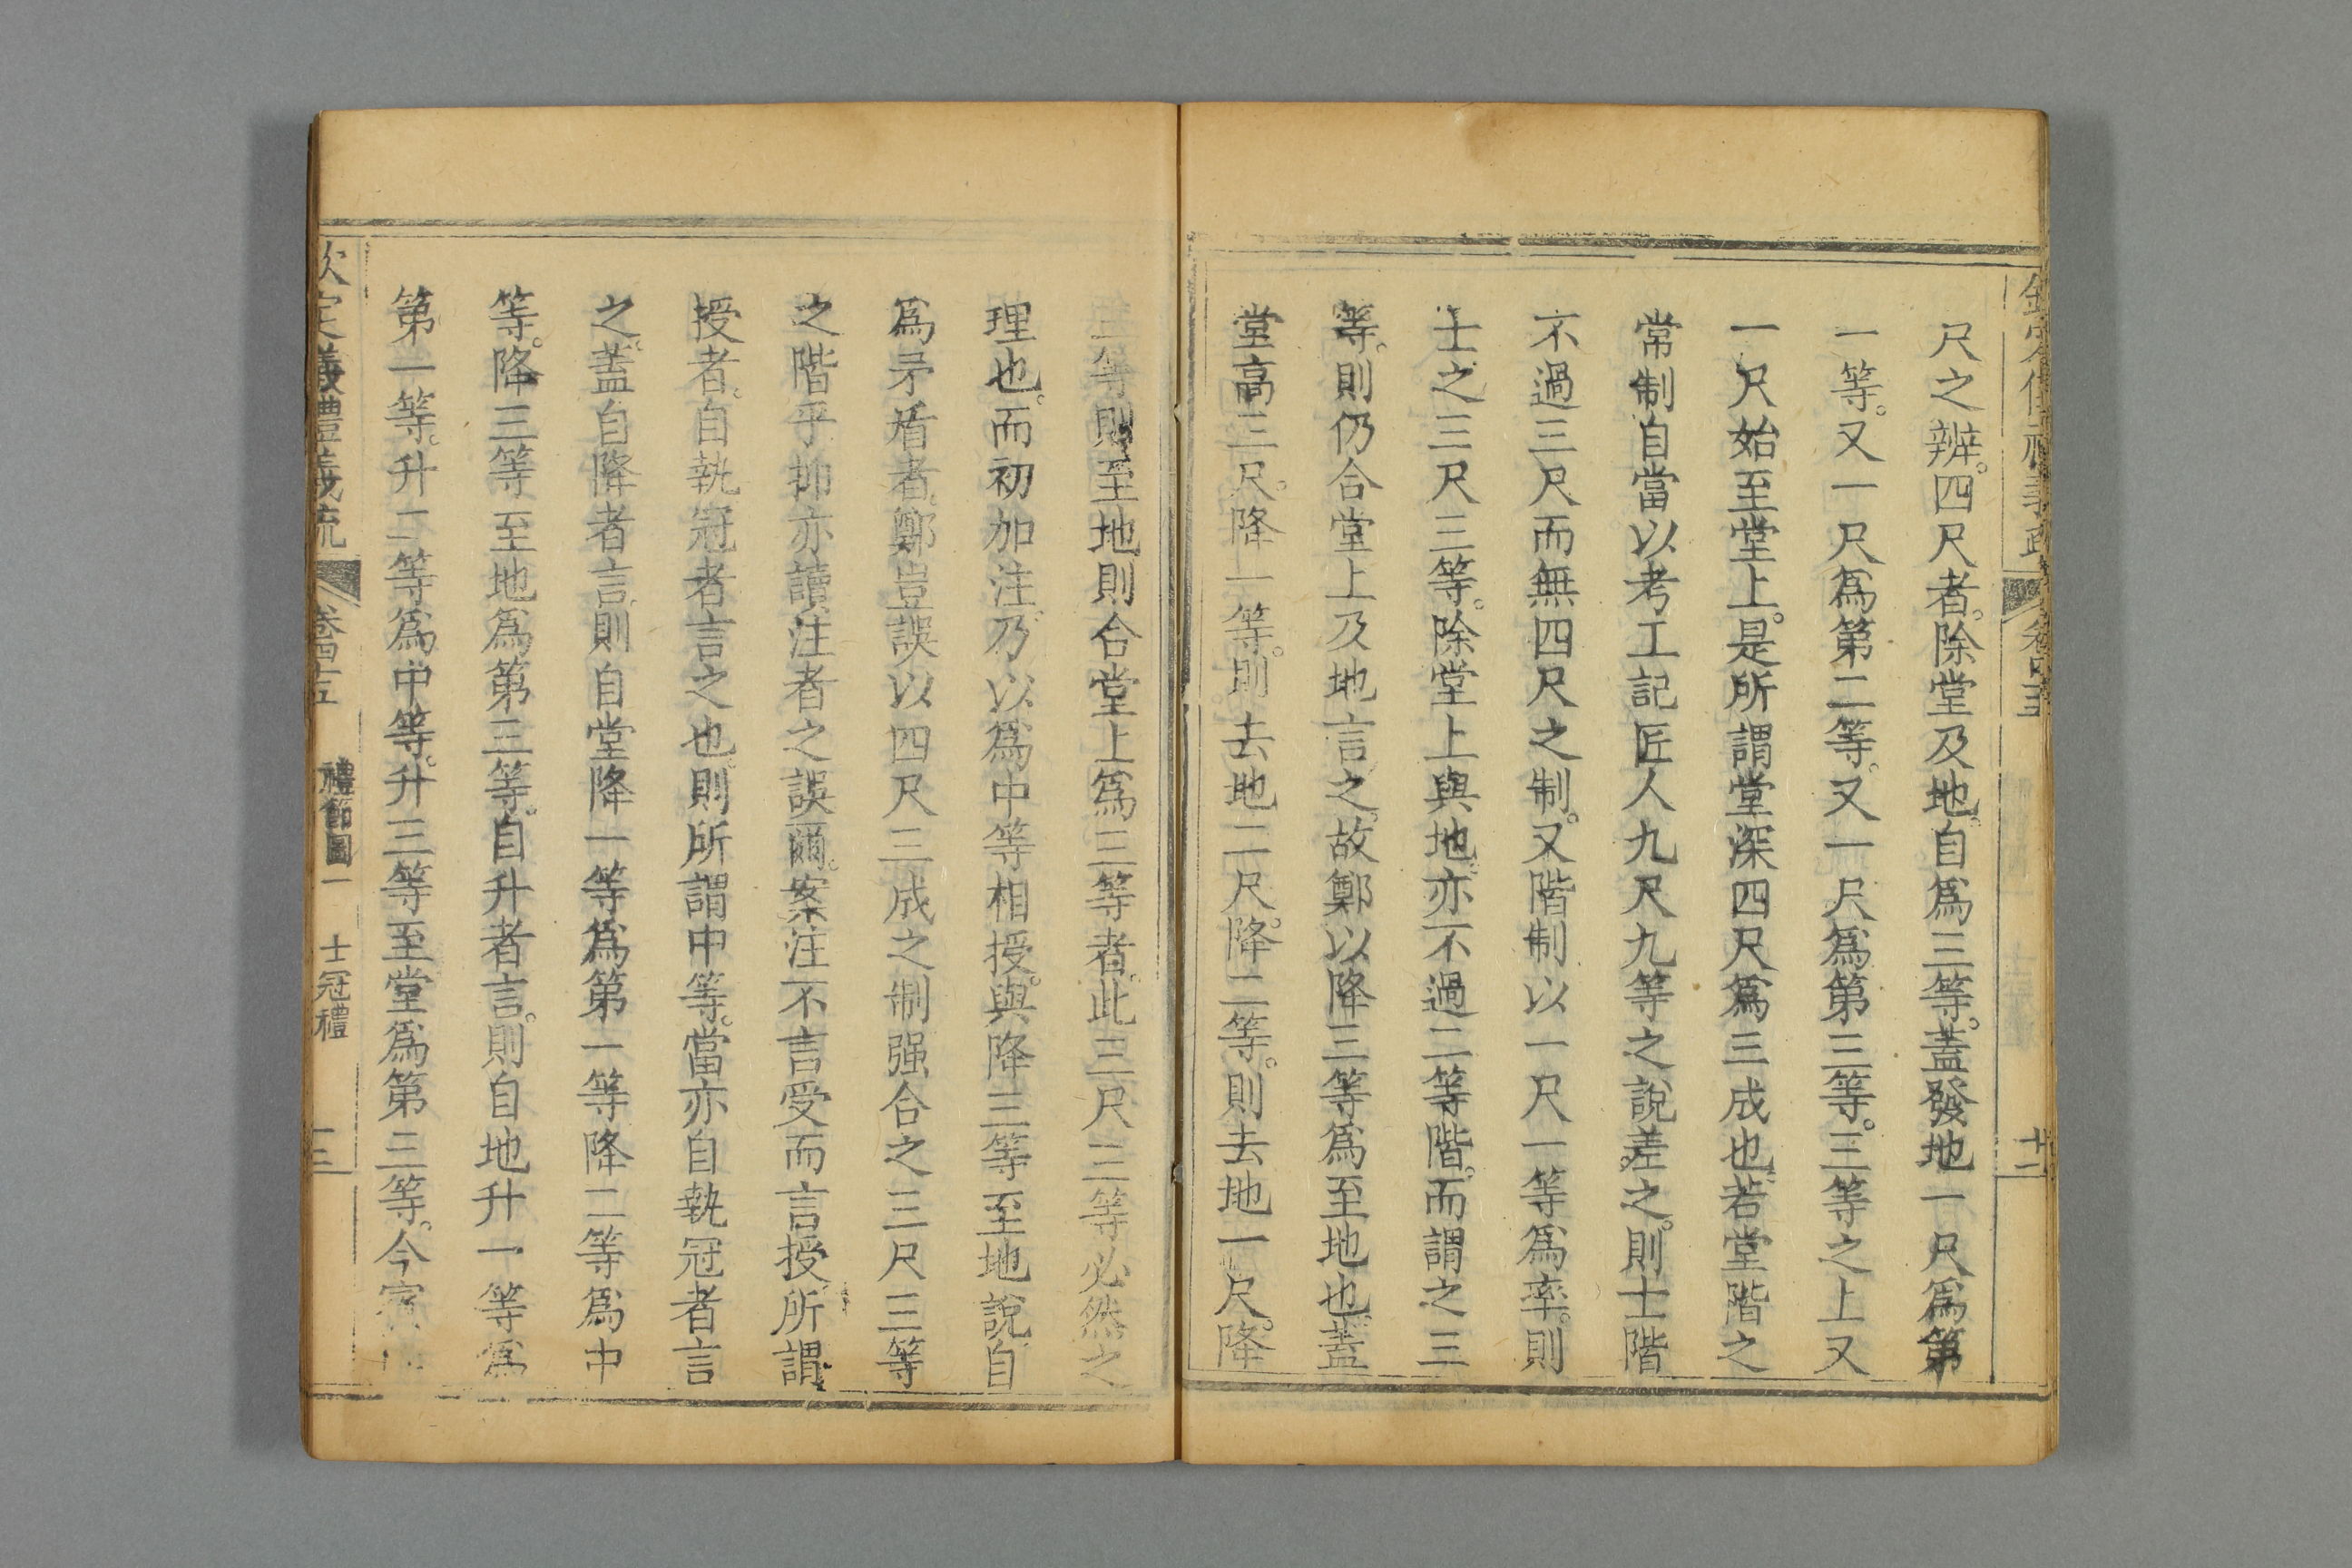 欽定儀禮義疏 卷四十五 十二
尺之辨。四尺者。除堂及地。自爲三等。蓋發地一尺爲第
一等。又一尺爲第二等。又一尺爲第三等。三等之上又
一尺始至堂上。是所謂堂深四尺爲三成也。若堂階之
常制自當以考工記匠人九尺九等之說差之。則士階
不過三尺而無四尺之制。又階制以一尺一等爲率。則
士之三尺三等。除堂上與地。亦不過二等階。而謂之三
等。則仍合堂上及地言之。故鄭以降三等爲至地也。蓋
堂高三尺。降一等。則去地二尺。降二等。則去地一尺。降
三等則至地則合堂上爲三等者。此三尺三等必然之
理也。而初加注乃以爲中等相授。與降三等至地說自
爲矛盾者。鄭豈誤以四尺三成之制强合之三尺三等
之階乎抑亦讀注者之誤爾。案注不言受而言授。所謂
授者。自執冠者言之也。則所謂中等。當亦自執冠者言
之。蓋自降者言則自堂降一等爲第一等降二等爲中
等。降三等至地爲第三等。自升者言。則自地升一等爲
第一等。升二等爲中等。升三等至堂爲第三等。今
欽定儀禮義疏 卷四十五 禮節圖一 士冠禮